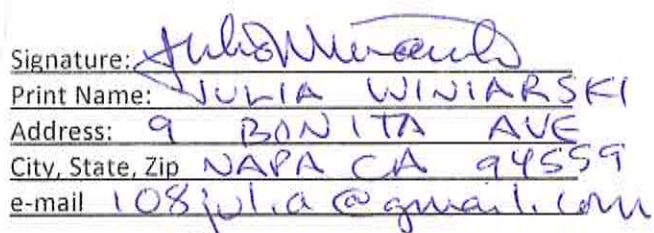 Signature: Julia Winiarski
Print Name: JULIA WINIARSKI
Address: 9 BONITA AVE
City, State, Zip NAPA CA 94559
e-mail 108julia@gmail.com